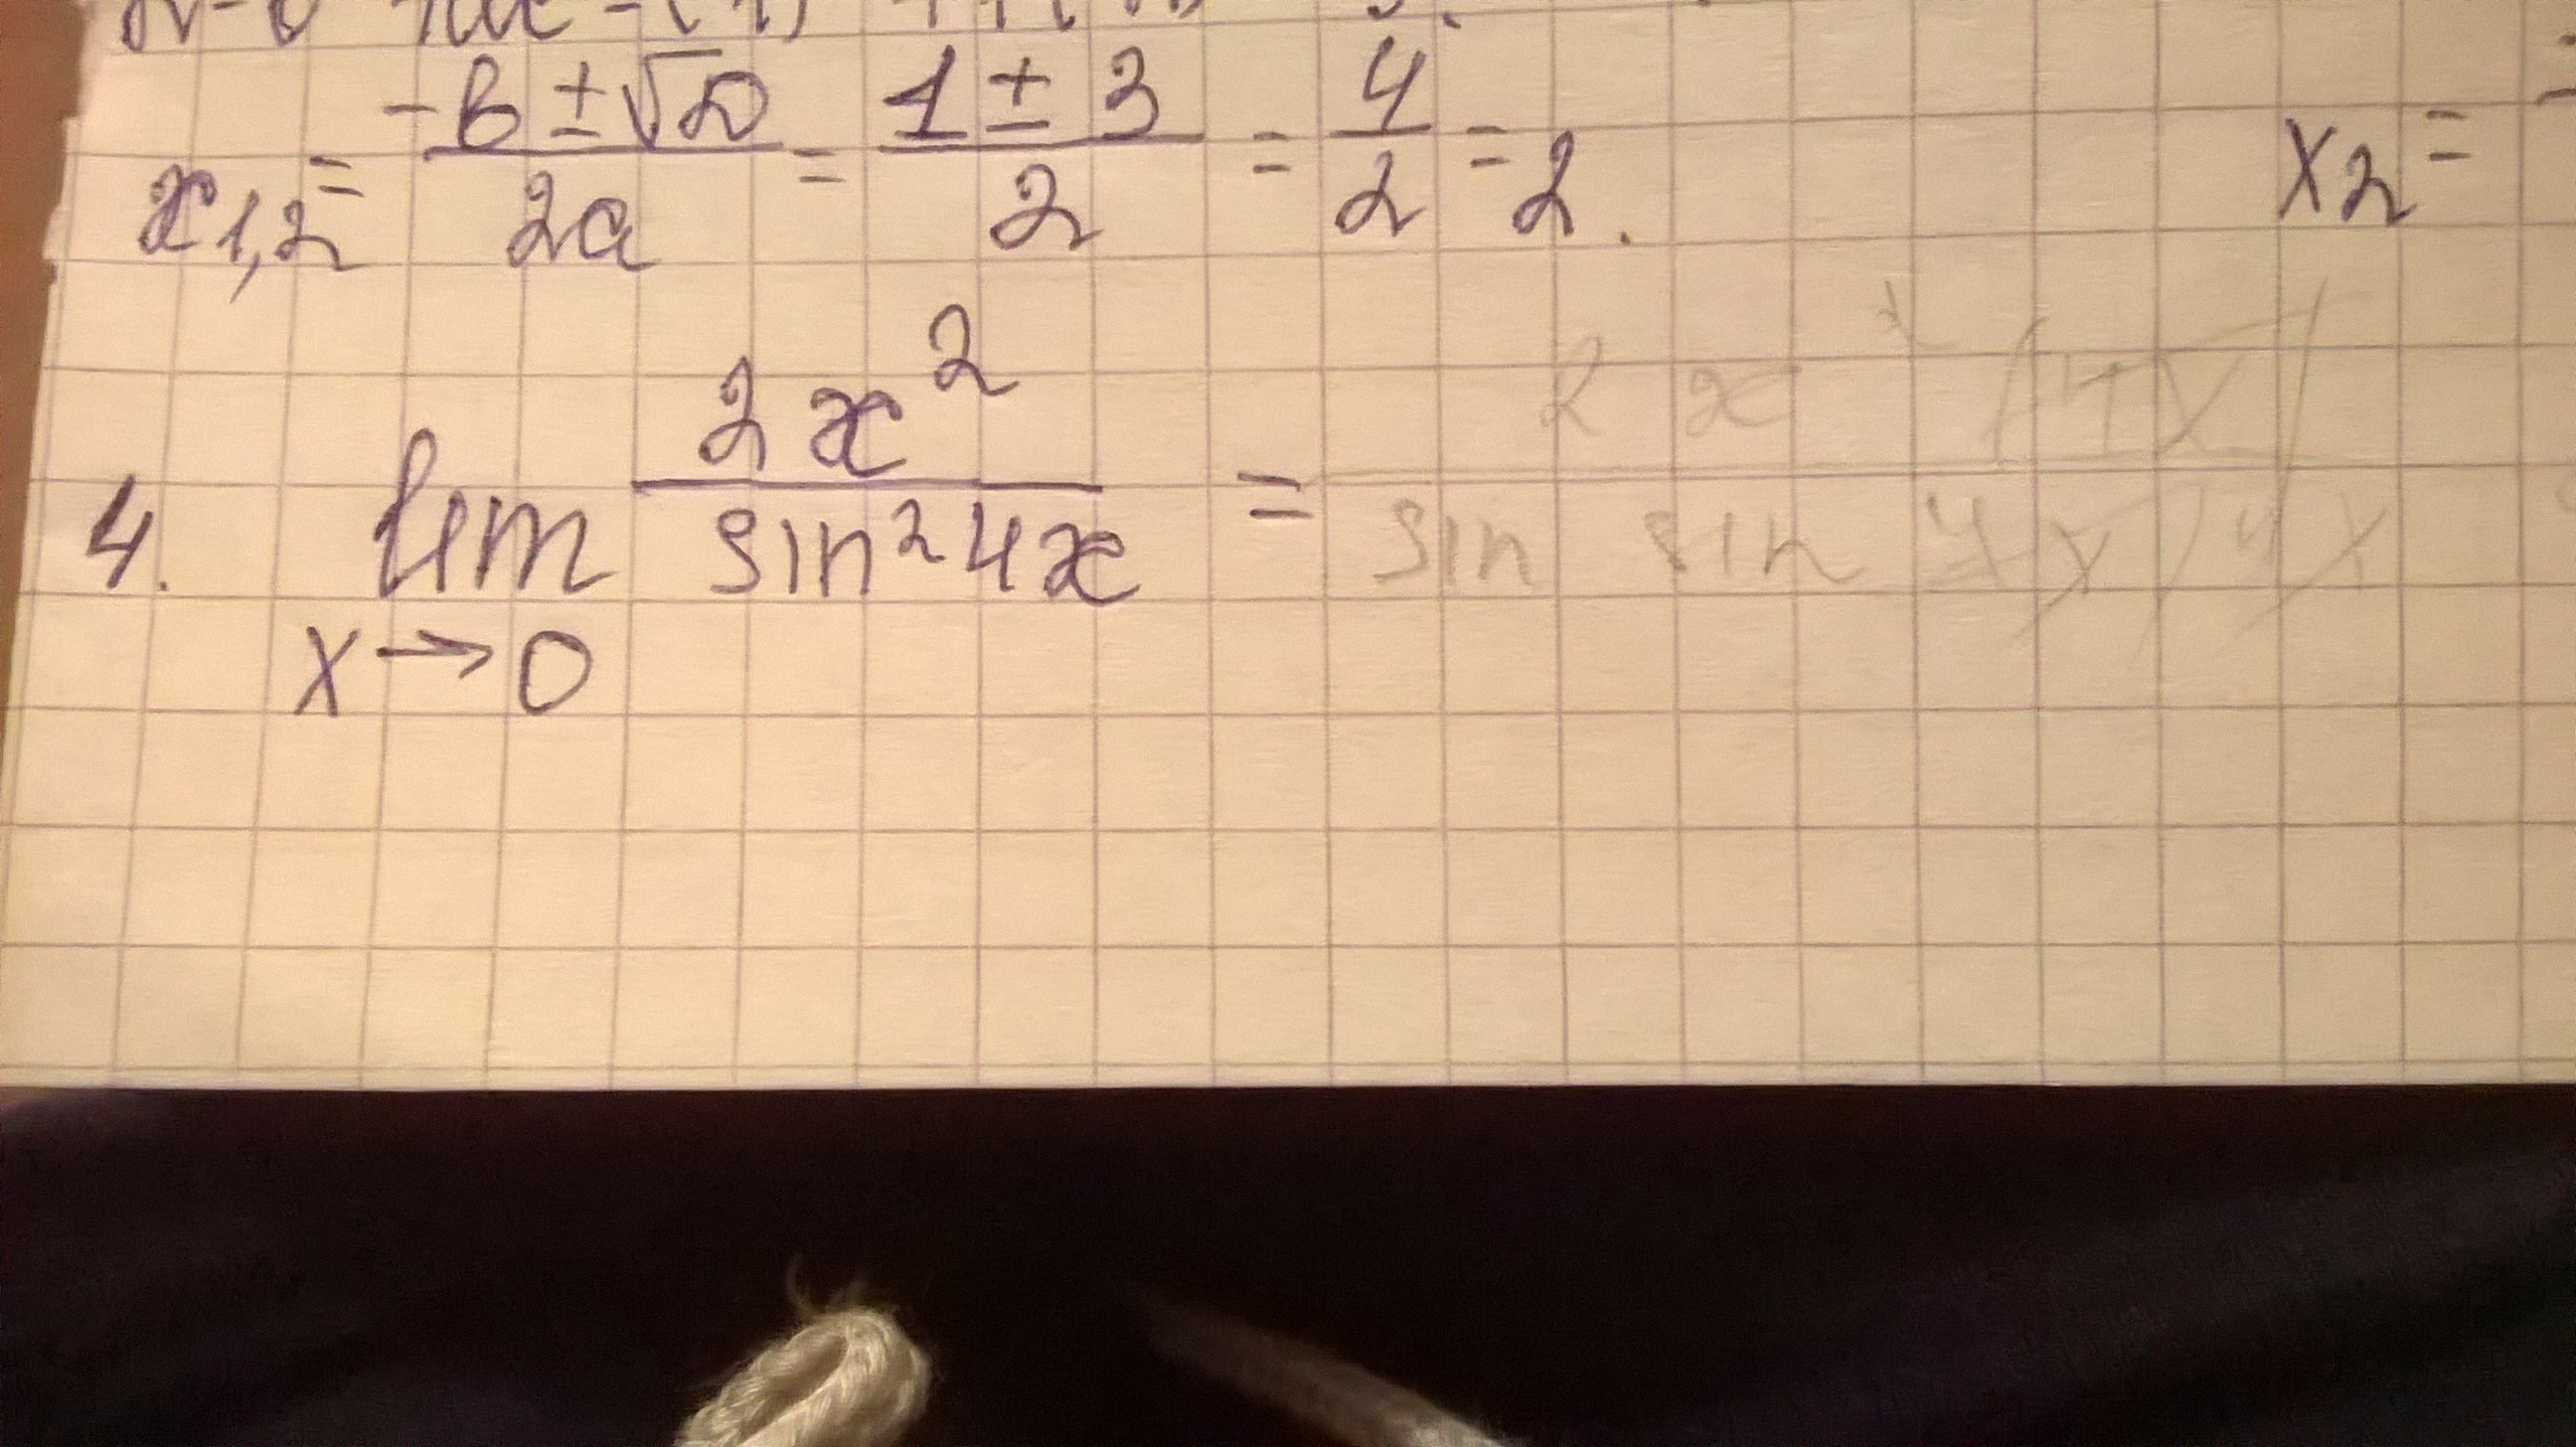 x1,2 = (-b ± √D)/2a = (1 ± 3)/2 = 4/2 = 2. x2 =
4. lim x→0 2x²/sin²4x = 2x² (4x)/sin sin 4x) 4x